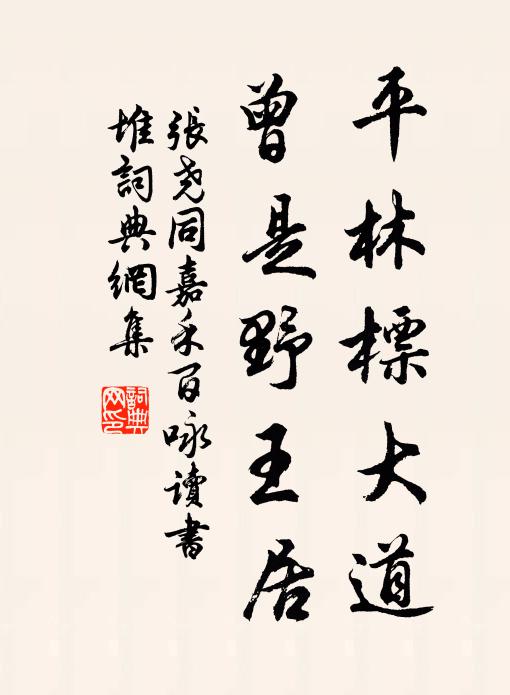 平林標大道
曾是野王居
張堯同嘉禾百咏讀書
堆詞典網集
詞典
网印